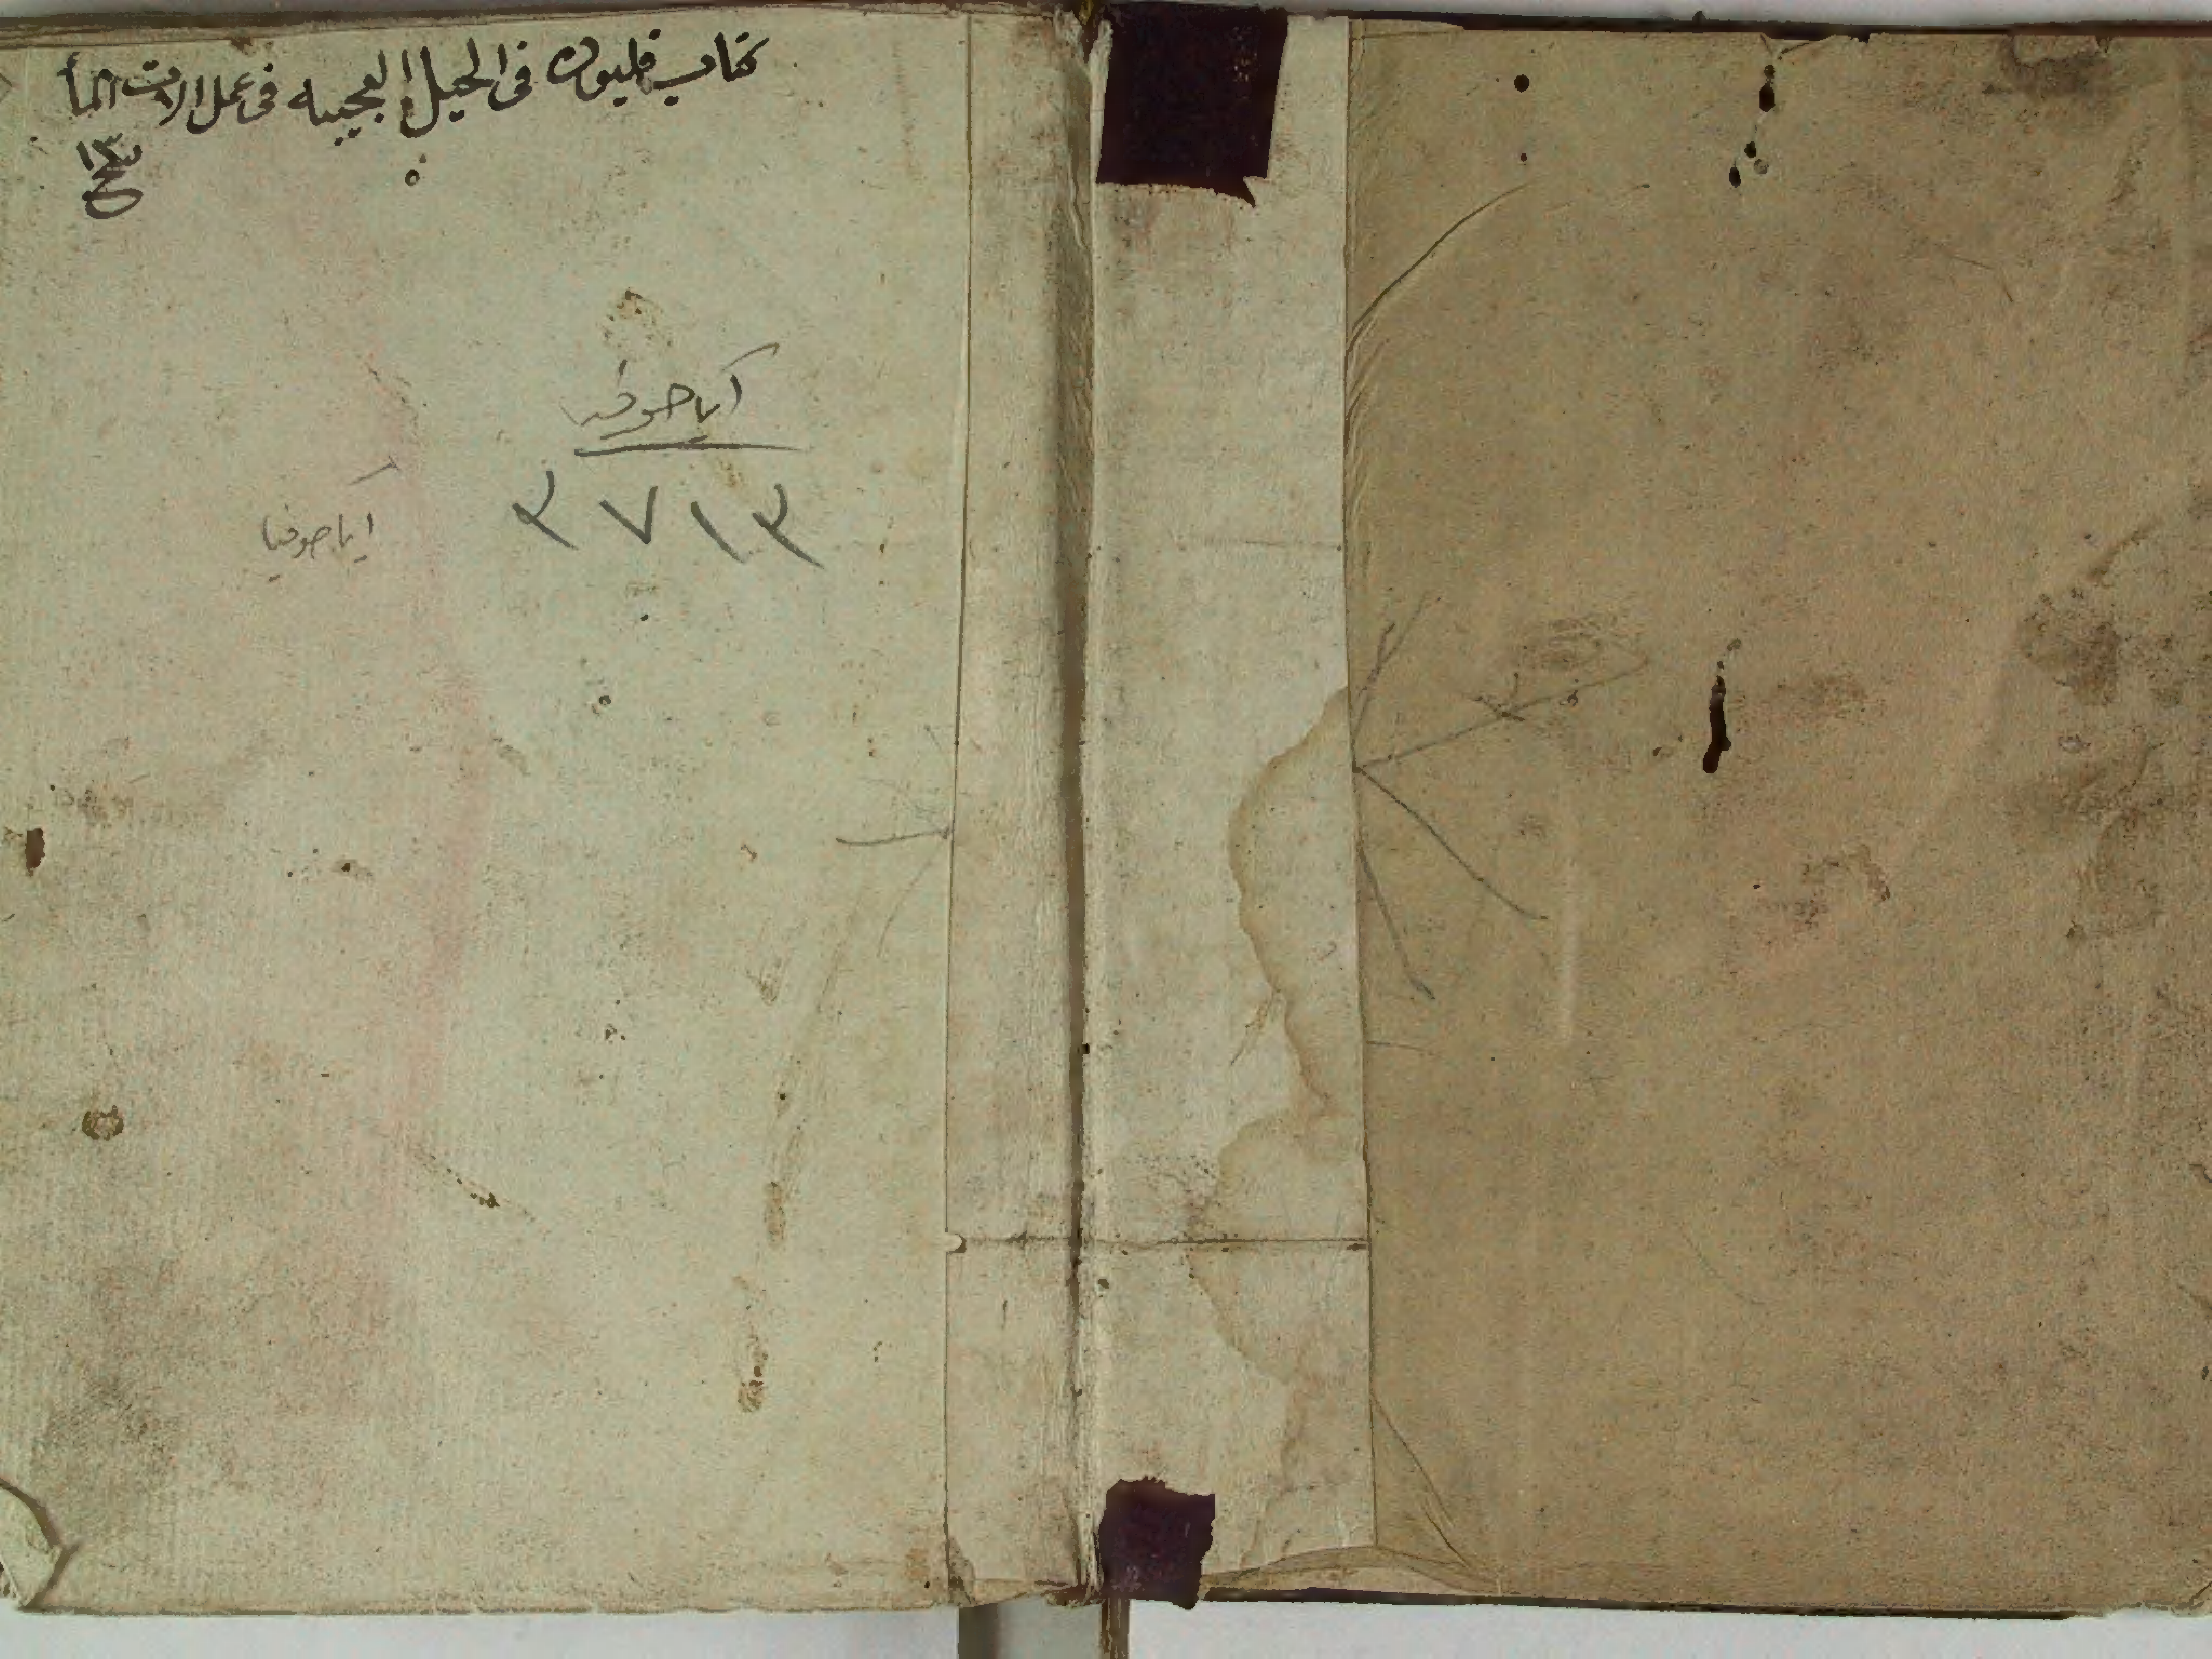 كتاب فليون في الحيل العجيبه في عمل الات الما
آيا صوفيه
٣٧١٣
ايا صوفيا